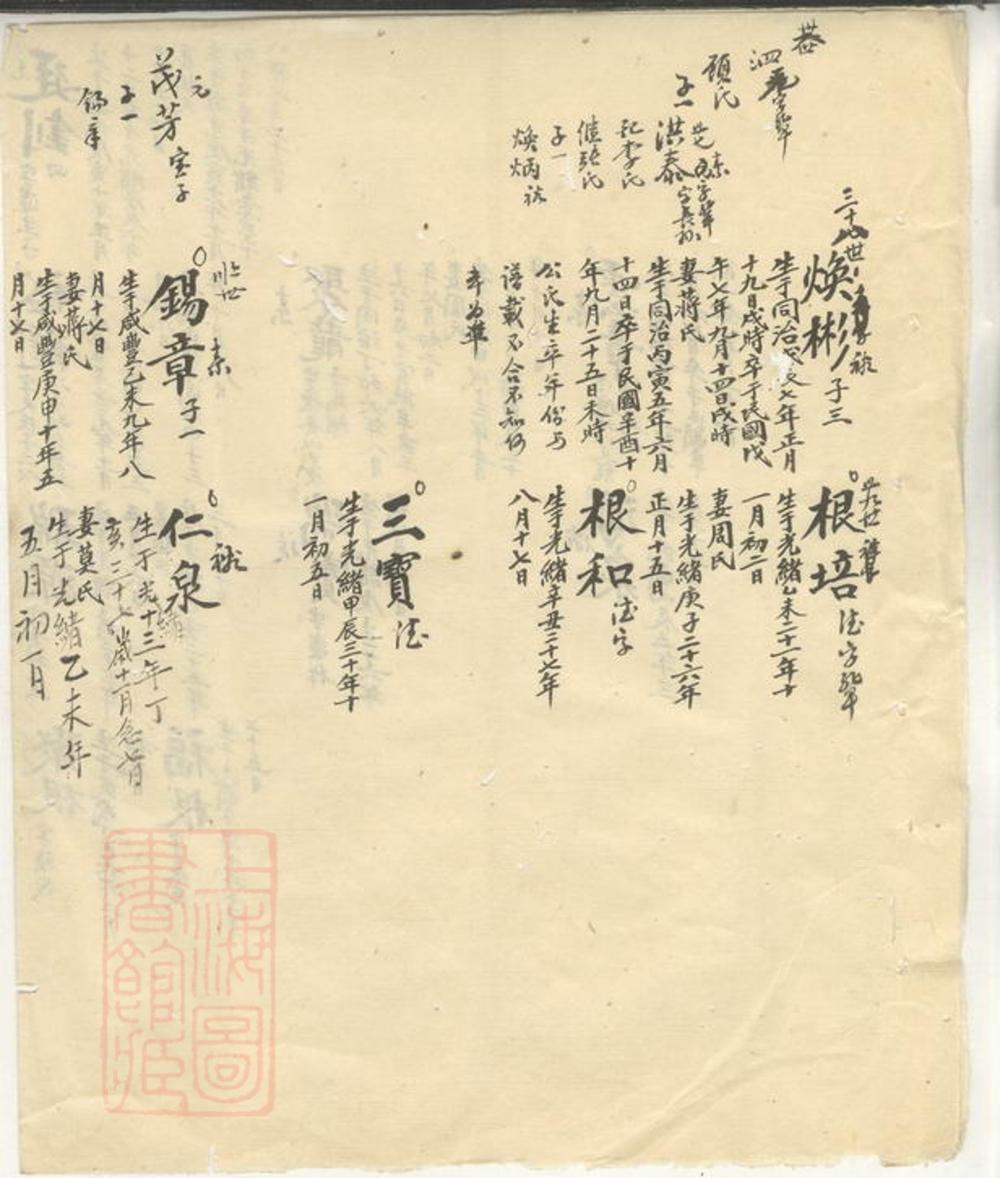 顧氏
子一
洪泰
配李氏
繼張氏
子一
煥炳
三十八世
煥彬 子三
生于同治七年正月
十九日戌時卒于民國戊
午七年九月十四日戌時
妻蔣氏
生于同治丙寅五年六月
十四日卒于民國辛酉十
年九月二十五日未時
公氏生卒年份与
譜載不合不知何
者為準
根培 法字輩
生于光緒乙未二十一年十
一月初二日
妻周氏
生于光緒庚子二十六年
正月十五日
根和 法字
生于光緒辛丑二十七年
八月十七日
三寶 法
生于光緒甲辰三十年十
一月初五日
元
茂芳 宝子
子一
錫章
錫章 子一
生于咸豐乙未九年八
月十七日
妻蔣氏
生于咸豐庚申十年五
月十七日
仁泉
生于光緒十三年丁
亥三十七歲十一月念一日
妻莫氏
生于光緒乙未年
五月初一日
上海圖
書館藏